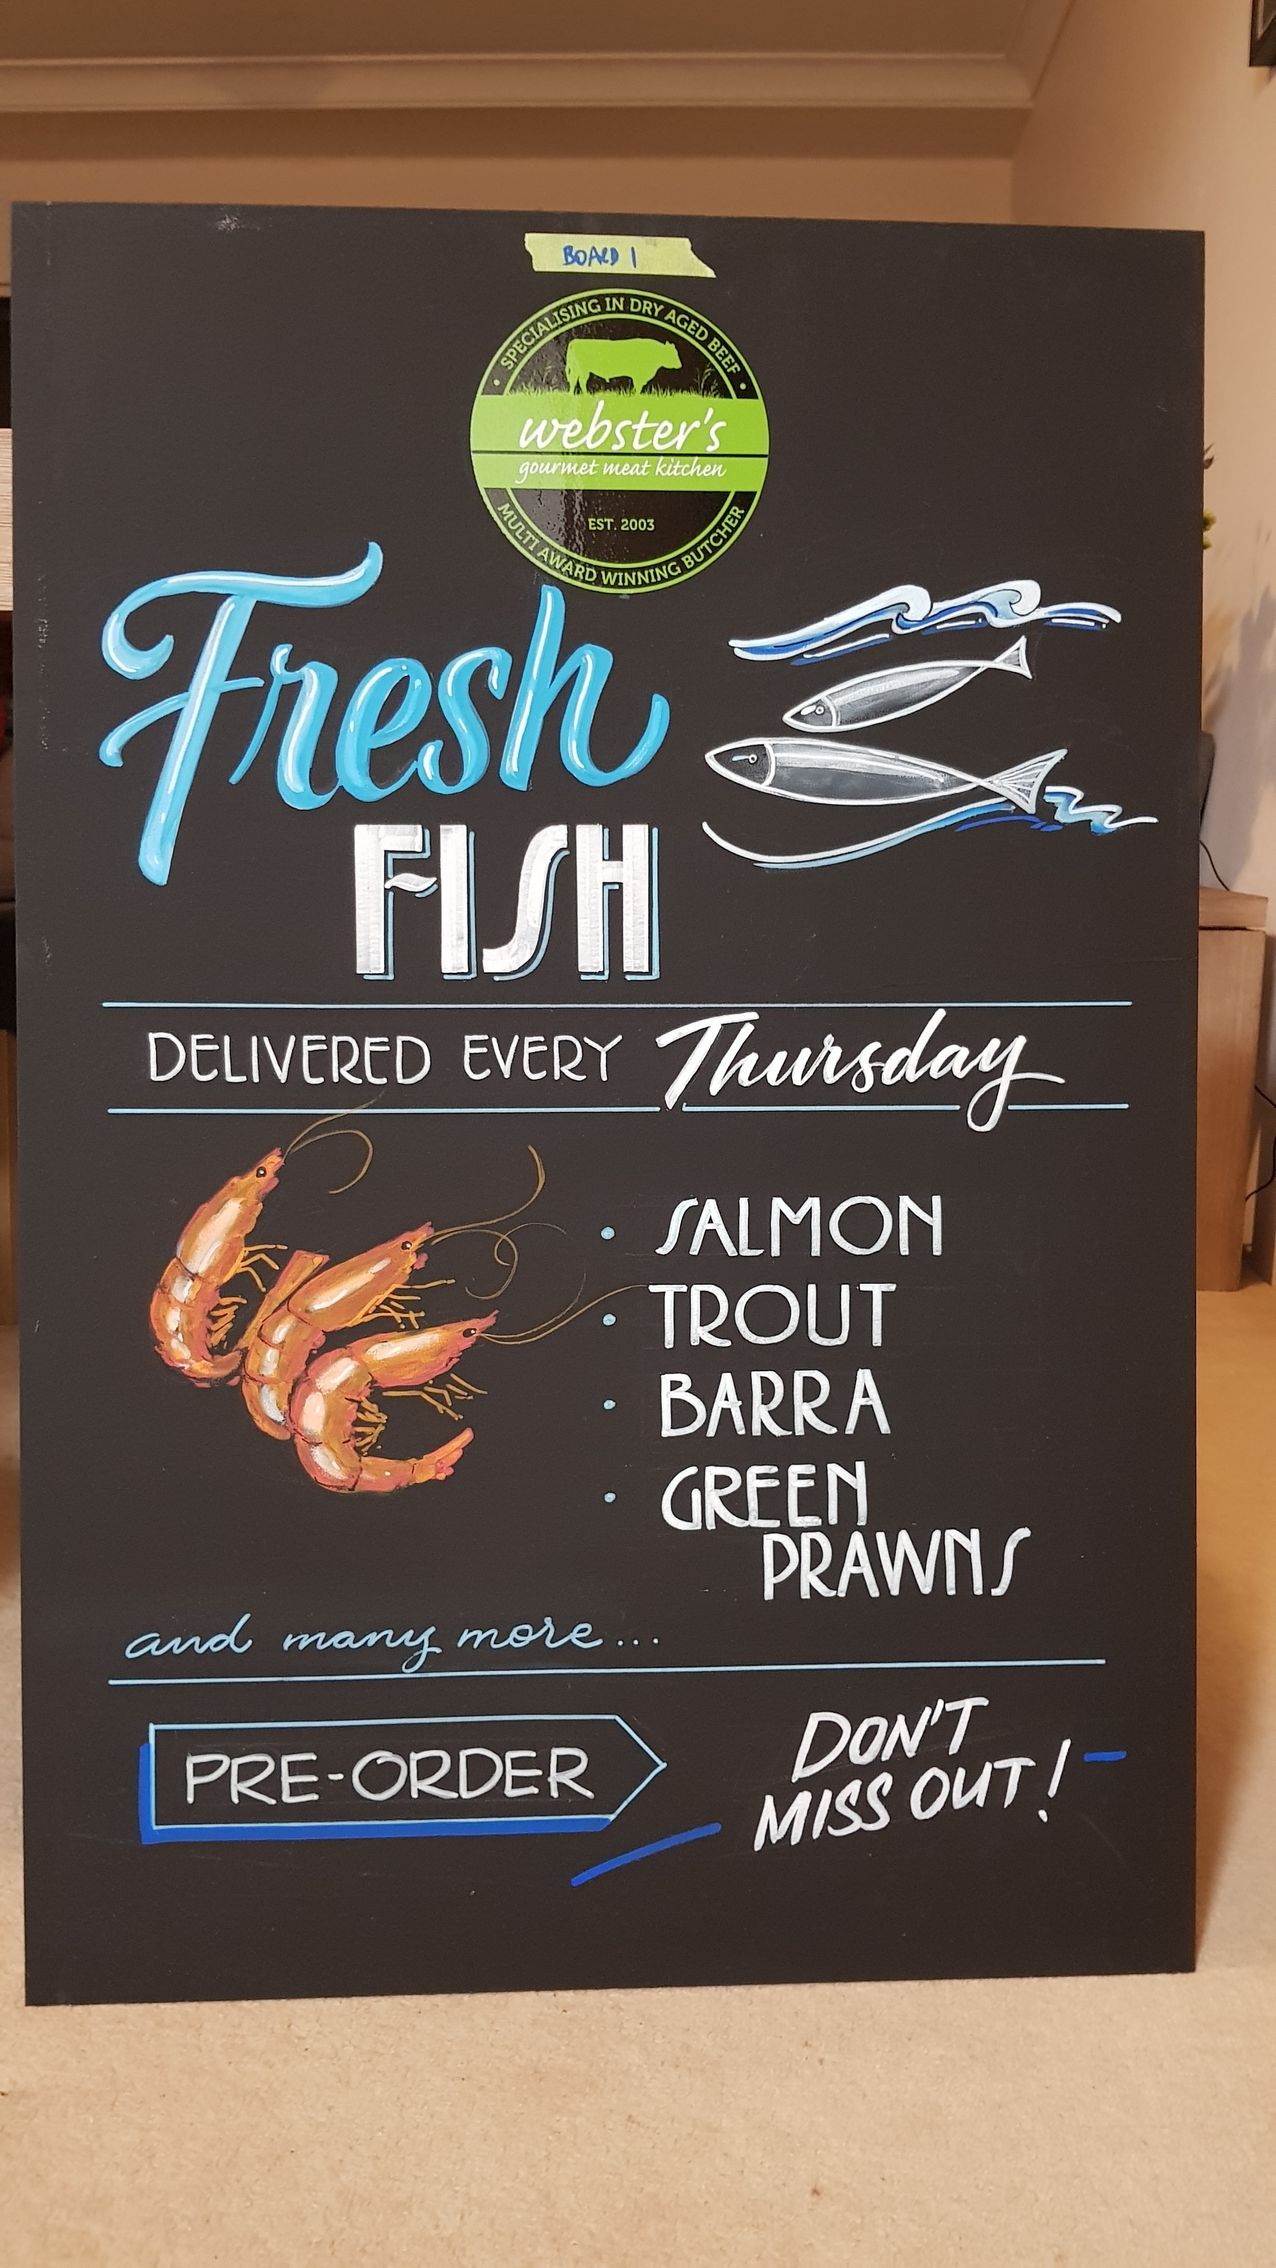 BOARD 1
SPECIALISING IN DRY AGED BEEF
webster's
gourmet meat kitchen
EST. 2003
MULTI AWARD WINNING BUTCHER
Fresh
FISH
DELIVERED EVERY Thursday
• SALMON
• TROUT
• BARRA
• GREEN
PRAWNS
and many more...
PRE-ORDER
DON'T
MISS OUT!